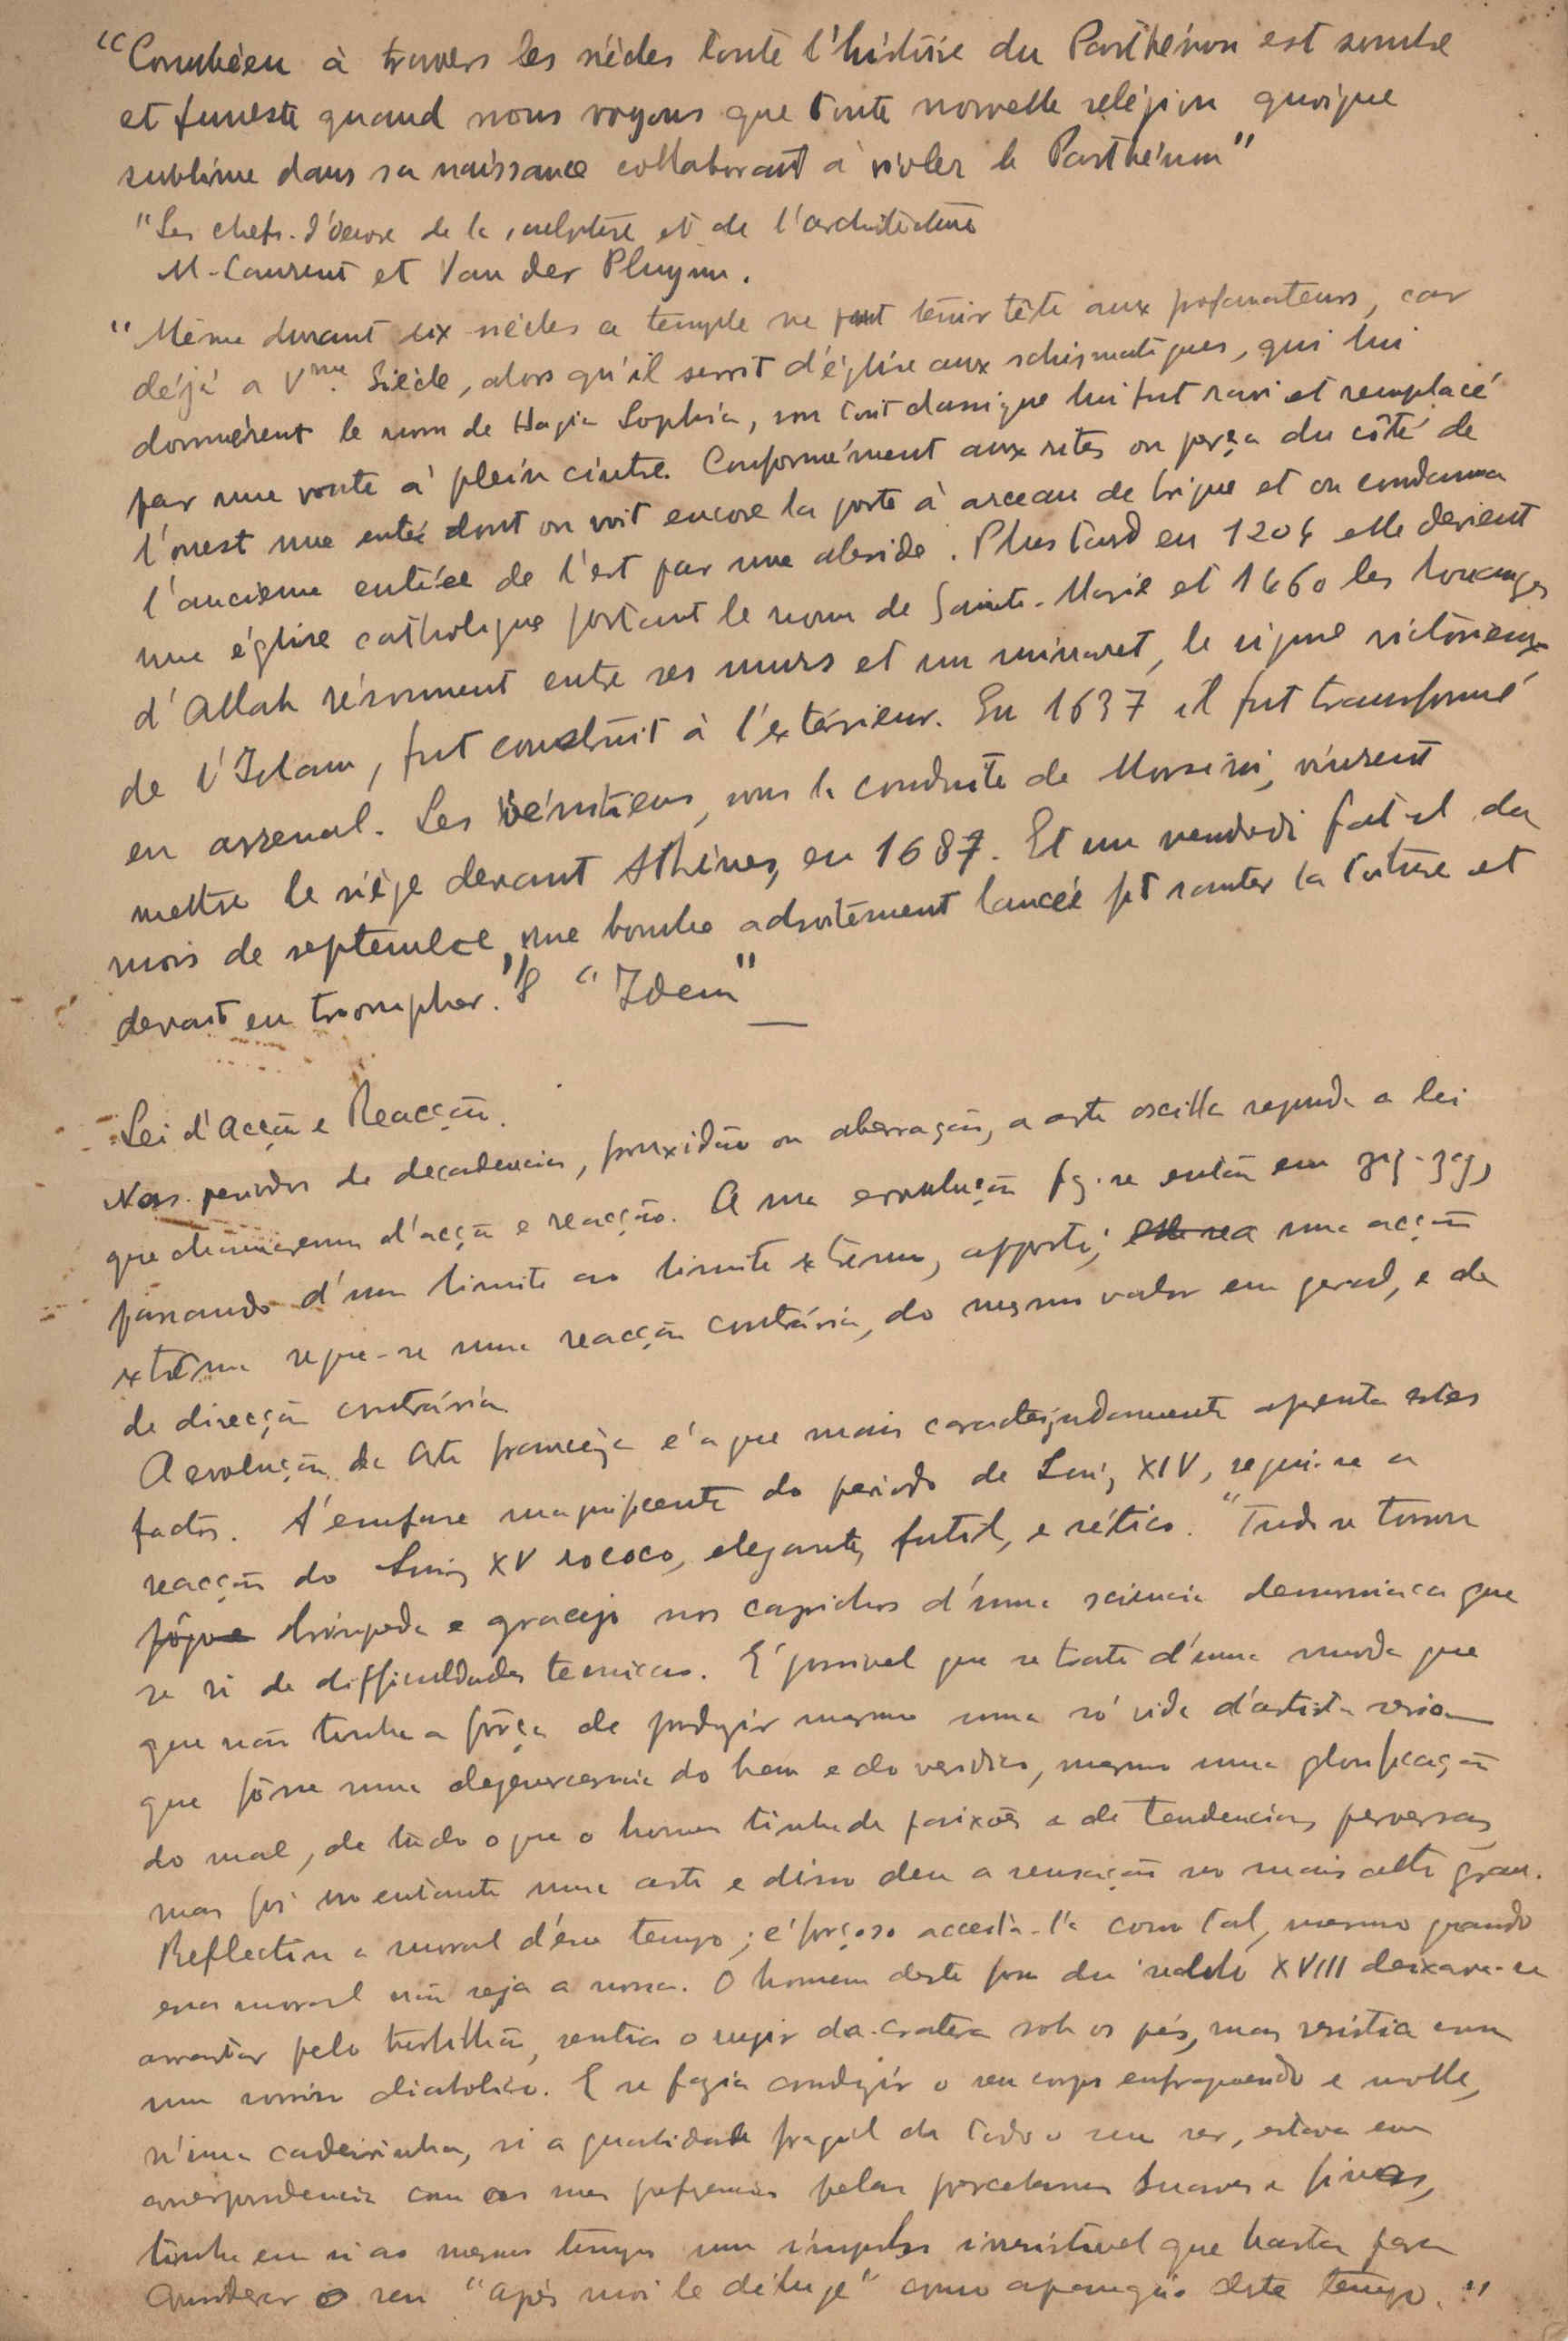 "Combien à travers les siècles toute l'histoire du Parthénon est sombre
et funeste quand nous voyons que toute nouvelle religion quoique
sublime dans sa naissance collaborait à violer le Parthénon"
"Les chefs-d'œuvre de la sculpture et de l'architecture
M. Laurent et Van der Pluym.
"Même durant dix siècles ce temple ne put tenir tête aux profanateurs, car
déjà a Vme Siècle, alors qu'il servit d'église aux schismatiques, qui lui
donnèrent le nom de Hagia Sophia, son toit classique lui fut ravi et remplacé
par une voute à plein cintre. Conformément aux rites on perça du côté de
l'ouest une entrée dont on voit encore la porte à arceau de brique et on condamna
l'ancienne entrée de l'est par une abside. Plus tard en 1204 elle devient
une église catholique portant le nom de Sainte-Marie et 1460 les louanges
d'Allah résonnent entre ses murs et un minaret, le signe victorieux
de l'Islam, fut construit à l'extérieur. En 1637 il fut transformé
en arsenal. Les Vénitiens, sous la conduite de Morsini, vinrent
mettre le siège devant Athènes, en 1687. Et un vendredi fatal du
mois de septembre, une bombe adroitement lancée fit sauter la toiture et
devait en triompher." "Idem"
Lei d'Acção e Reacção.
Nos periodos de decadencia, frouxidão ou aberração, a arte oscilla segundo a lei
que chamaremos d'acção e reacção. A sua evolução faz-se então em zig-zag,
passando d'um limite ao limite extremo, opposto; uma acção
extrema segue-se uma reacção contrária, do mesmo valor em geral, e de
de direcção contrária
A evolução da Arte franceza é a que mais caracterizadamente aprenta estes
factos. A' emfase magnificente do periodo de Luiz XIV, segui-se a
reacção do Luiz XV rococo, elegante, futil, e rético. "Tudo se torna
brinquedo e gracejo nos caprichos d'uma sciencia demoniaca que
se ri de difficuldades tecnicas. E' possivel que se trate d'uma moda que
que não tenha a fôrça de produzir mesmo uma só vida d'artista seria
que fôsse uma degenerescencia do bem e do veridico, mesmo uma glorificação
do mal, de tudo o que o homem tinha de paixões e de tendencias perversas,
mas foi no entanto uma arte e disso deu a sensação no mais alto grau.
Reflectiu a moral d'esse tempo; é forçoso acceità-la como tal, mesmo quando
essa moral não seja a nossa. O homem deste fim du seculo XVIII deixava-se
arrastar pelo turbilhão, sentia o rugir da cratera sob os pés, mas resistia com
um sorriso diabolico. E se fazia conduzir o seu corpo enfraquecido e molle,
n'uma cadeirinha, si a qualidade fragil de todo o seu ser, estava em
correspondencia com as suas preferencias pelas porcelanas suaves e finas,
tinha em si ao mesmo tempo um impulso irresistivel que basta para
conderar o seu "après moi le déluge" como apanagio deste tempo."